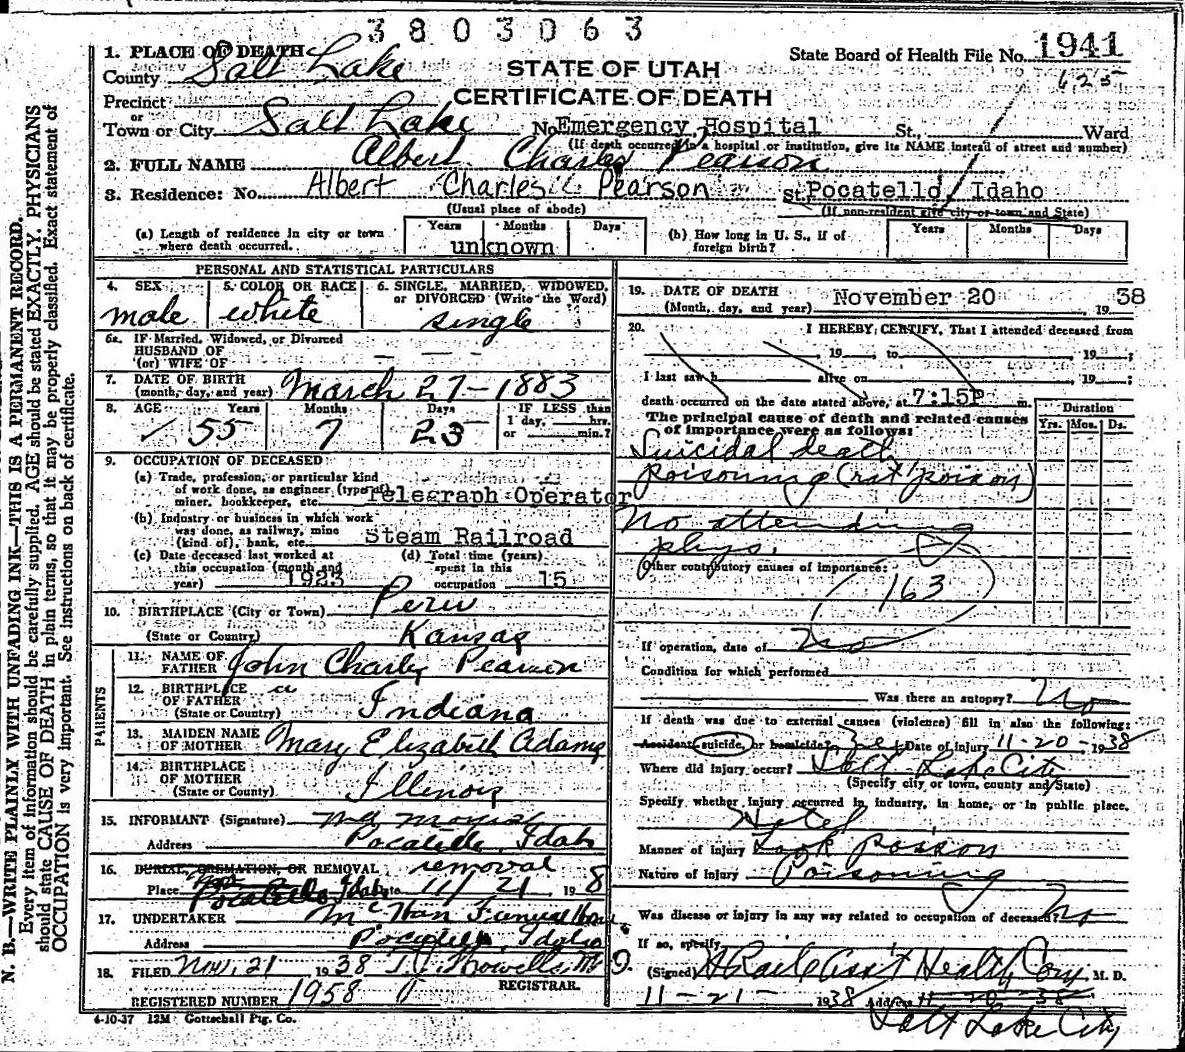 3803063
1. PLACE OF DEATH
State Board of Health File No. 1941
County Salt Lake
STATE OF UTAH
625
Precinct
CERTIFICATE OF DEATH
or
Town or City Salt Lake No. Emergency Hospital St., Ward
(If death occurred in a hospital or institution, give its NAME instead of street and number)
2. FULL NAME Albert Charles Pearson
3. Residence: No. Albert Charles Pearson St. Pocatello, Idaho
(Usual place of abode) (If non-resident give city or town and State)
(a) Length of residence in city or town where death occurred. Years Months Days unknown
(b) How long in U. S., if of foreign birth? Years Months Days
PERSONAL AND STATISTICAL PARTICULARS
4. SEX male
5. COLOR OR RACE white
6. SINGLE, MARRIED, WIDOWED, or DIVORCED (Write the Word) single
6a. IF Married, Widowed, or Divorced
HUSBAND OF
(or) WIFE OF
7. DATE OF BIRTH
(month, day, and year) March 27-1883
8. AGE Years Months Days IF LESS than
1 day, hrs.
or min.?
55 7 23
9. OCCUPATION OF DECEASED:
(a) Trade, profession, or particular kind
of work done, as engineer (type of)
miner, bookkeeper, etc. Telegraph Operator
(b) Industry or business in which work
was done, as railway, mine
(kind of), bank, etc. Steam Railroad
(c) Date deceased last worked at
this occupation (month and
year) 1923
(d) Total time (years)
spent in this
occupation 15
10. BIRTHPLACE (City or Town) Peru
(State or Country) Kanzas
PARENTS
11. NAME OF
FATHER John Charles Pearson
12. BIRTHPLACE
OF FATHER
(State or Country) Indiana
13. MAIDEN NAME
OF MOTHER Mary Elizabeth Adams
14. BIRTHPLACE
OF MOTHER
(State or Country) Illinois
15. INFORMANT (Signature)
Address Pocatello, Idaho
16. BURIAL, CREMATION, OR REMOVAL removal
Place Pocatello Idaho Date 11/21 1938
17. UNDERTAKER McHan Funeral Home
Address Pocatello, Idaho
18. FILED Nov. 21 1938 T. J. Howells, M.D.
REGISTRAR.
REGISTERED NUMBER 1958
19. DATE OF DEATH
(Month, day, and year) November 20 1938
20. I HEREBY CERTIFY, That I attended deceased from
19 , to 19 ;
I last saw h alive on 19 ;
death occurred on the date stated above, at 7:15P m.
The principal cause of death and related causes
of importance were as follows:
Duration
Yrs. Mos. Ds.
Suicidal death
poisoning (rat poison)
No attending
phys.
Other contributory causes of importance:
163
If operation, date of No
Condition for which performed
Was there an autopsy? No
If death was due to external causes (violence) fill in also the following:
Accident, suicide, or homicide? Yes Date of injury 11-20-1938
Where did injury occur? Salt Lake City
(Specify city or town, county and State)
Specify whether injury occurred in industry, in home, or in public place.
Hotel
Manner of injury Took Poison
Nature of injury Poisoning
Was disease or injury in any way related to occupation of deceased? No
If so, specify
(Signed) Asst Health Com M. D.
11-21- 1938 Address 11-20-38
Salt Lake City
4-10-37 12M Gottschall Ptg. Co.
N. B.—WRITE PLAINLY WITH UNFADING INK—THIS IS A PERMANENT RECORD.
Every item of information should be carefully supplied. AGE should be stated EXACTLY. PHYSICIANS
should state CAUSE OF DEATH in plain terms, so that it may be properly classified. Exact statement of
OCCUPATION is very important. See instructions on back of certificate.